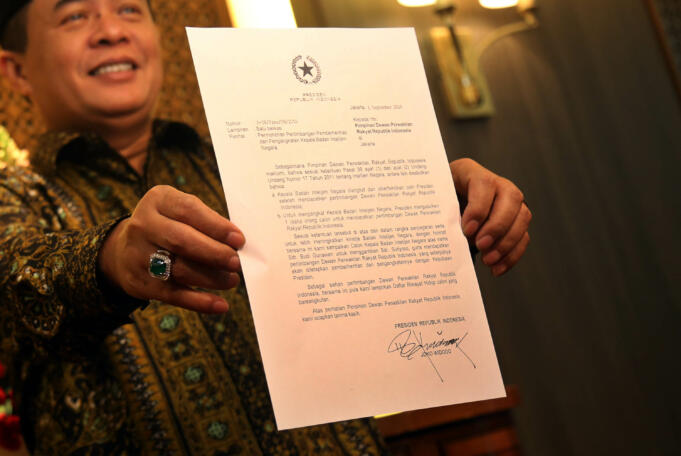 PRESIDEN
REPUBLIK INDONESIA
Jakarta, 1 September 2016
Nomor
Lampiran : Satu berkas
Perihal : Permohonan Pertimbangan Pemberhentian
dan Pengangkatan Kepala Badan Intelijen
Negara
Kepada Yth.
Pimpinan Dewan Perwakilan
Rakyat Republik Indonesia
di
Jakarta
Sebagaimana Pimpinan Dewan Perwakilan Rakyat Republik Indonesia
maklumi, bahwa sesuai ketentuan Pasal 36 ayat (1) dan ayat (2) Undang
Undang Nomor 17 Tahun 2011 tentang Intelijen Negara, antara lain disebutkan
bahwa:
a. Kepala Badan Intelijen Negara diangkat dan diberhentikan oleh Presiden
setelah mendapatkan pertimbangan Dewan Perwakilan Rakyat Republik
Indonesia.
b. Untuk mengangkat Kepala Badan Intelijen Negara, Presiden mengusulkan
1 (satu) orang calon untuk mendapatkan pertimbangan Dewan Perwakilan
Rakyat Republik Indonesia.
Sesuai ketentuan tersebut di atas dan dalam rangka penyegaran serta
untuk lebih meningkatkan kinerja Badan Intelijen Negara, dengan hormat
bersama ini kami sampaikan Calon Kepala Badan Intelijen Negara atas nama
Sdr. Budi Gunawan untuk menggantikan Sdr. Sutiyoso, guna mendapatkan
pertimbangan Dewan Perwakilan Rakyat Republik Indonesia, yang selanjutnya
akan ditetapkan pemberhentian dan pengangkatannya dengan Keputusan
Presiden.
Sebagai bahan pertimbangan Dewan Perwakilan Rakyat Republik
Indonesia, bersama ini pula kami lampirkan Daftar Riwayat Hidup calon yang
bersangkutan.
Atas perhatian Pimpinan Dewan Perwakilan Rakyat Republik Indonesia,
kami ucapkan terima kasih.
PRESIDEN REPUBLIK INDONESIA,
JOKO WIDODO